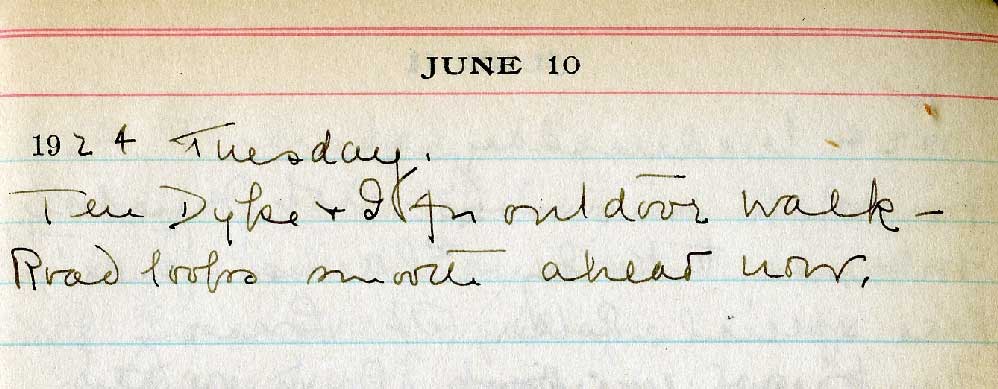 JUNE 10
1924 Tuesday.
Ten Dyke + I for outdoor walk –
Road looks smooth ahead now.